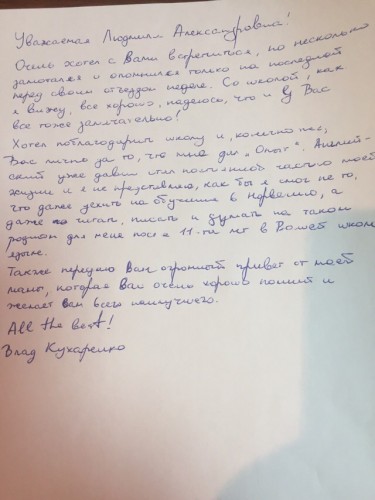 Уважаемая Людмила Александровна!
Очень хотел с Вами встретиться, но несколько
замотался и опомнился только на последней
перед своим отъездом неделе. Со школой, как
я вижу, все хорошо, надеюсь, что и у Вас
все тоже замечательно!
Хотел поблагодарить школу и, конечно же,
Вас лично за то, что мне дал "Опыт". Англий-
ский уже давно стал постоянной частью моей
жизни и я не представляю, как бы я смог не то,
что даже ехать на обучение в Норвегию, а
даже читать, писать и думать на таком
родном для меня после 11-ти лет в Вашей школе
языке.
Также передаю Вам огромный привет от моей
мамы, которая Вас очень хорошо помнит и
желает Вам всего наилучшего.
All the best!
Влад Кухаренко